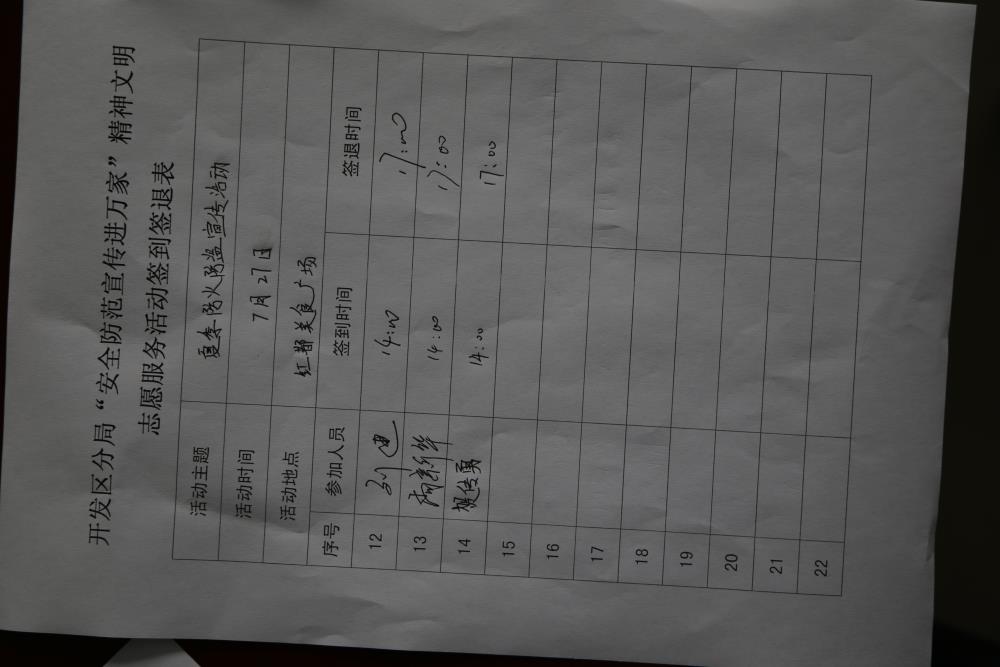 开发区分局“安全防范宣传进万家”精神文明
志愿服务活动签到签退表
活动主题 夏季防火防盗宣传活动
活动时间 7月27日
活动地点 红都美食广场
序号 参加人员 签到时间 签退时间
12 刘 14:00 17:00
13 新华 14:00 17:00
14 传勇 14:00 17:00
15
16
17
18
19
20
21
22